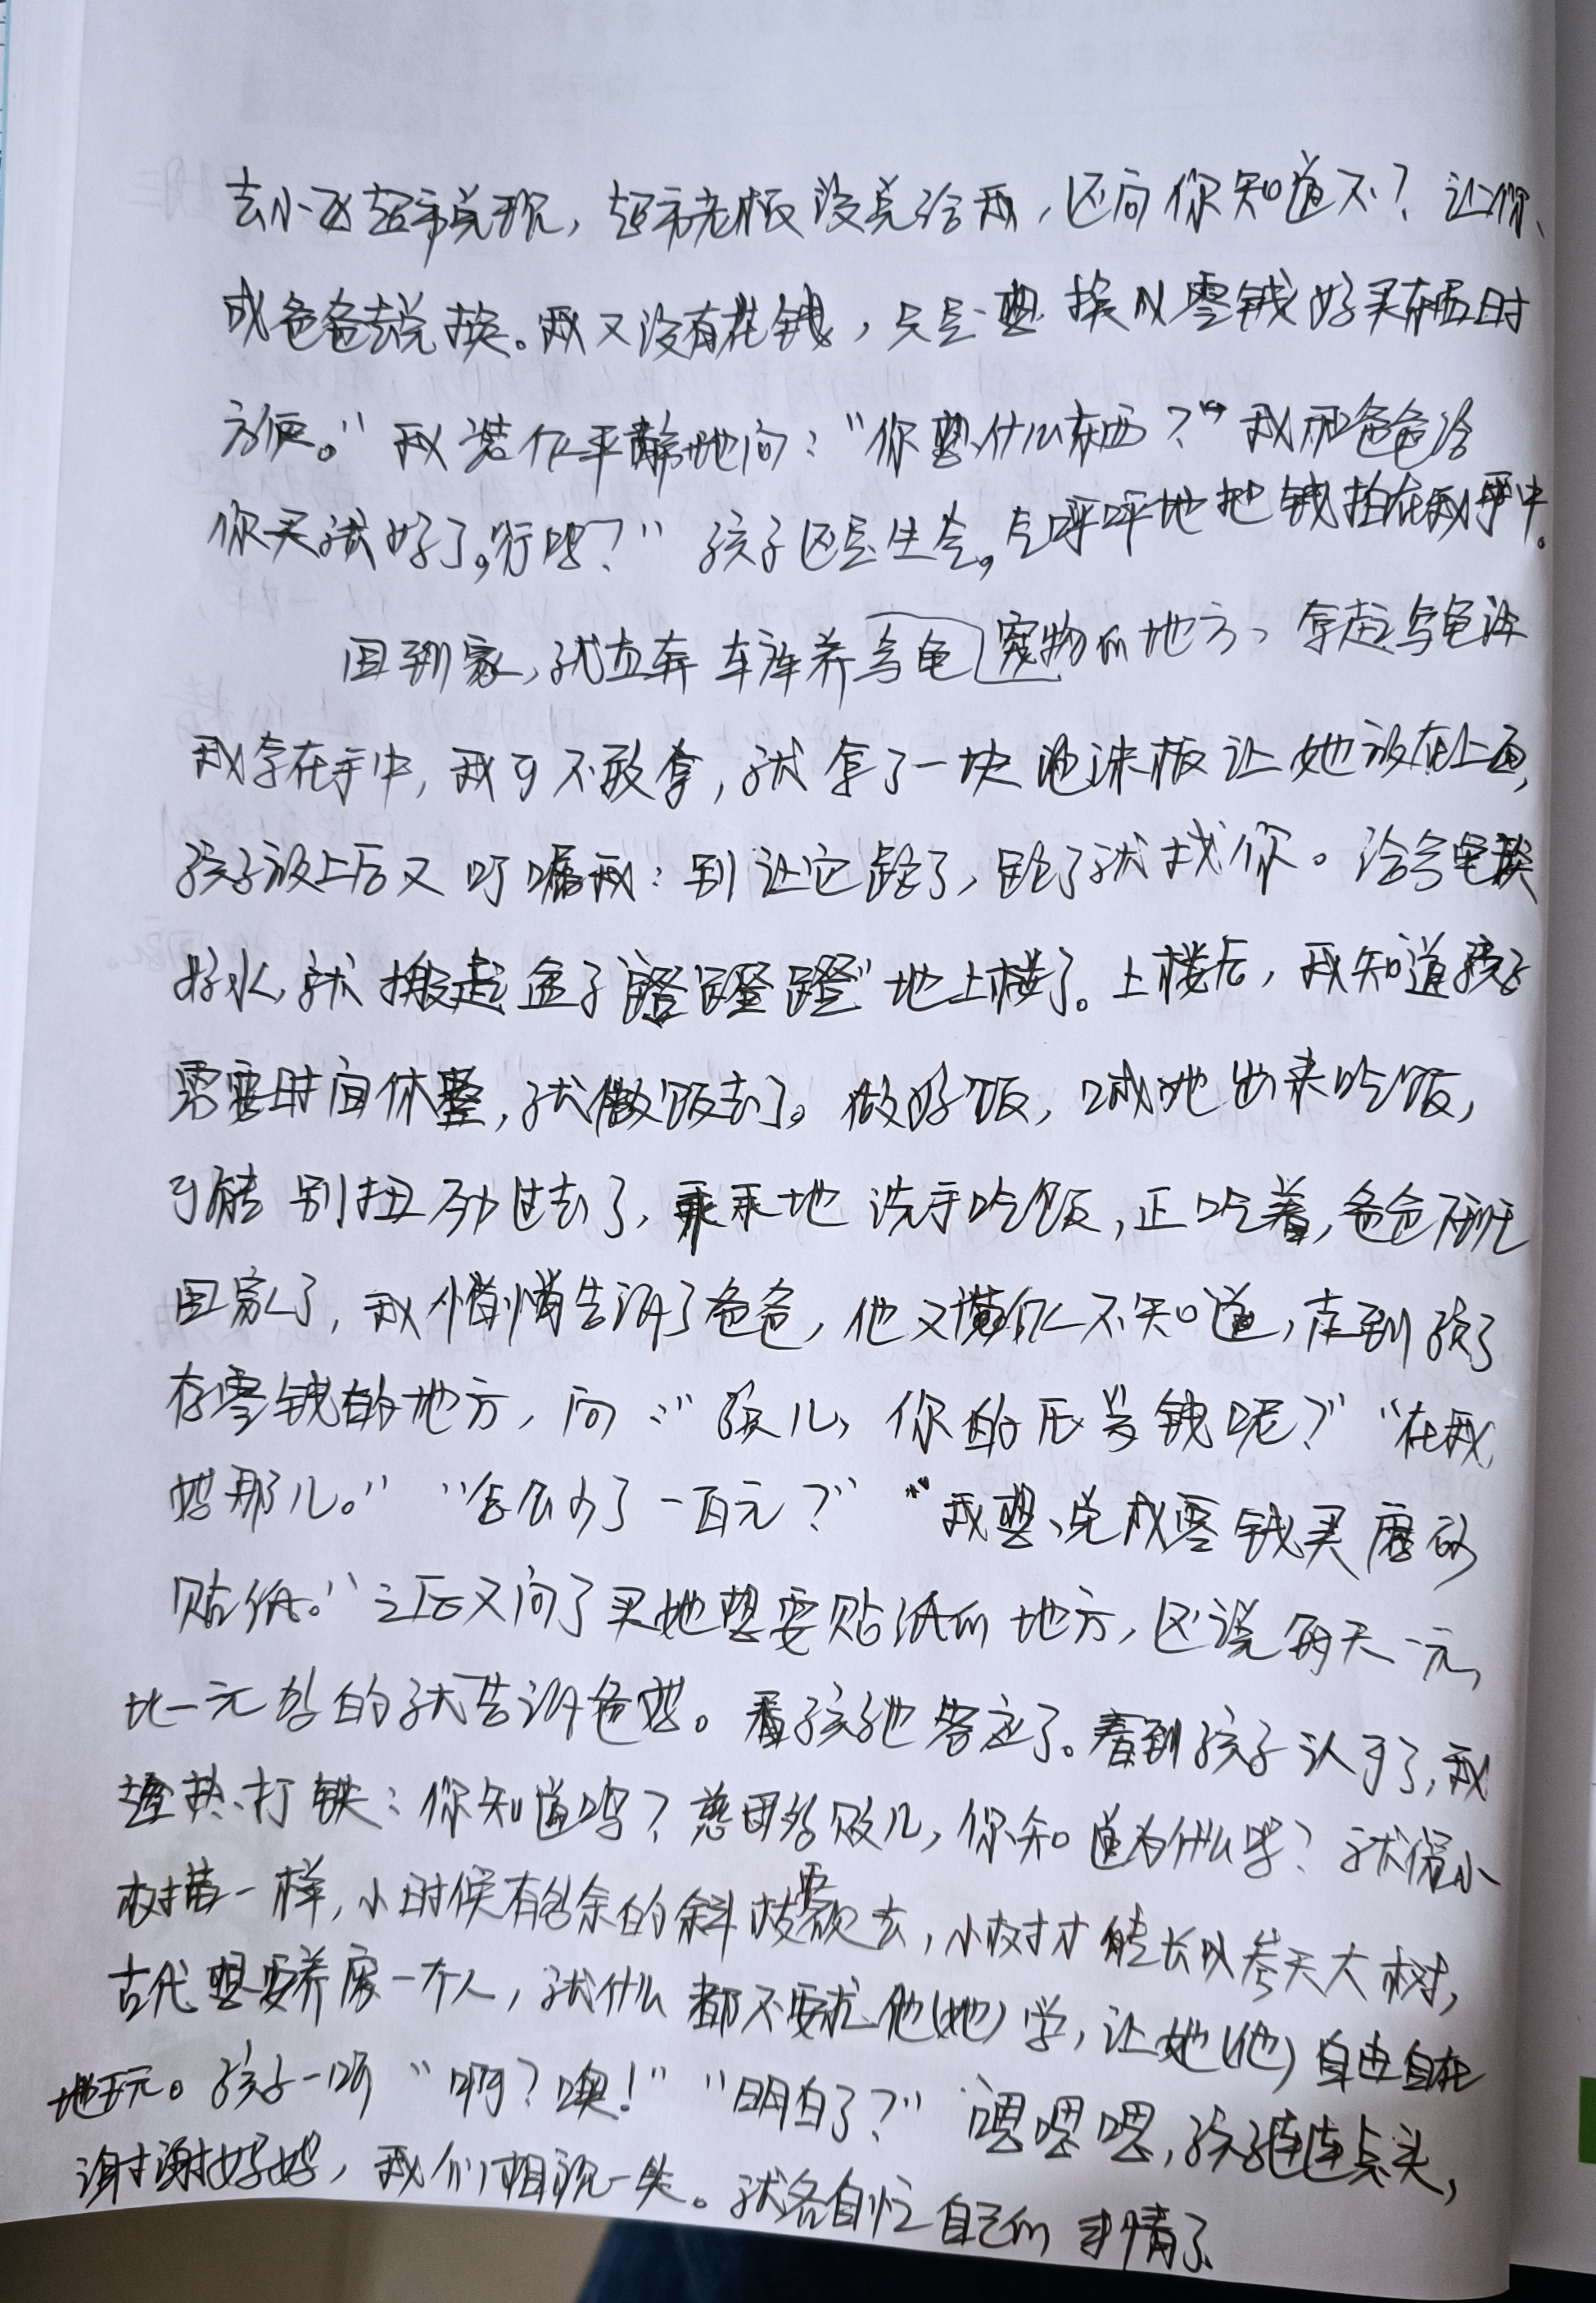 去小飞超市兑现，超市老板没兑给我，还问你知道不？让你、
或爸爸去兑换。我又没有花钱，只是想换成零钱好买东西时
方便。”我装作平静地问：“你要什么东西？”我和爸爸给
你买就好了。行吧？”孩子还是生气。气呼呼地把钱拍在我手中。
回到家，就直奔车库养乌龟宠物的地方、拿起乌龟让
我拿在手中，我可不敢拿，就拿了一块泡沫板让她放在上面，
孩子放上后又叮嘱我：别让它跑了，跑了就找你。给乌龟换
好水，就搬起盒子蹬蹬蹬”地上楼了。上楼后，我知道孩子
需要时间休整，就做饭去了。做好饭，喊她出来吃饭，
可能别扭劲过去了，乖乖地洗手吃饭，正吃着，爸爸
回家了，我悄悄告诉了爸爸，他又装作不知道，走到孩子
存零钱的地方，问：“孩儿，你的压岁钱呢？”“在我
妈那儿。”“怎么少了一百元？”“我要兑成零钱买磨砂
贴纸。”之后又问了买她想要贴纸的地方，还说每天一元，
比一元多的就告诉爸妈。看孩子也答应了。看到孩子认可了，我
趁热打铁：你知道吗？慈母多败儿，你知道为什么吗？就像小
树苗一样，小时候有多余的斜枝需砍去，小树才能长成参天大树，
古代想要养废一个人，就什么都不要求他（她）学，让她（他）自由自在
地玩。孩子一听“啊？噢！”“明白了？”嗯嗯嗯，孩子连连点头，
谢谢妈妈，我们相视一笑。就各自忙自己的事情了、